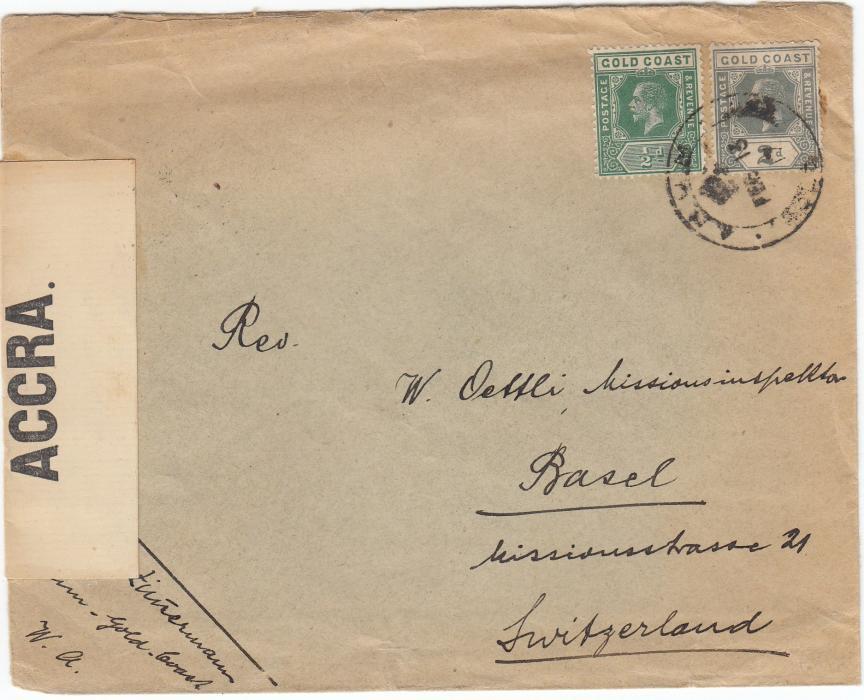 GOLD COAST
POSTAGE
& REVENUE
½d
GOLD COAST
POSTAGE
& REVENUE
2d
ACCRA.
Rev.
W. Oettli, Missionsinspektor
Basel
Missionsstrasse 21
Switzerland
Zimmermann
Gold-Coast
W. A.